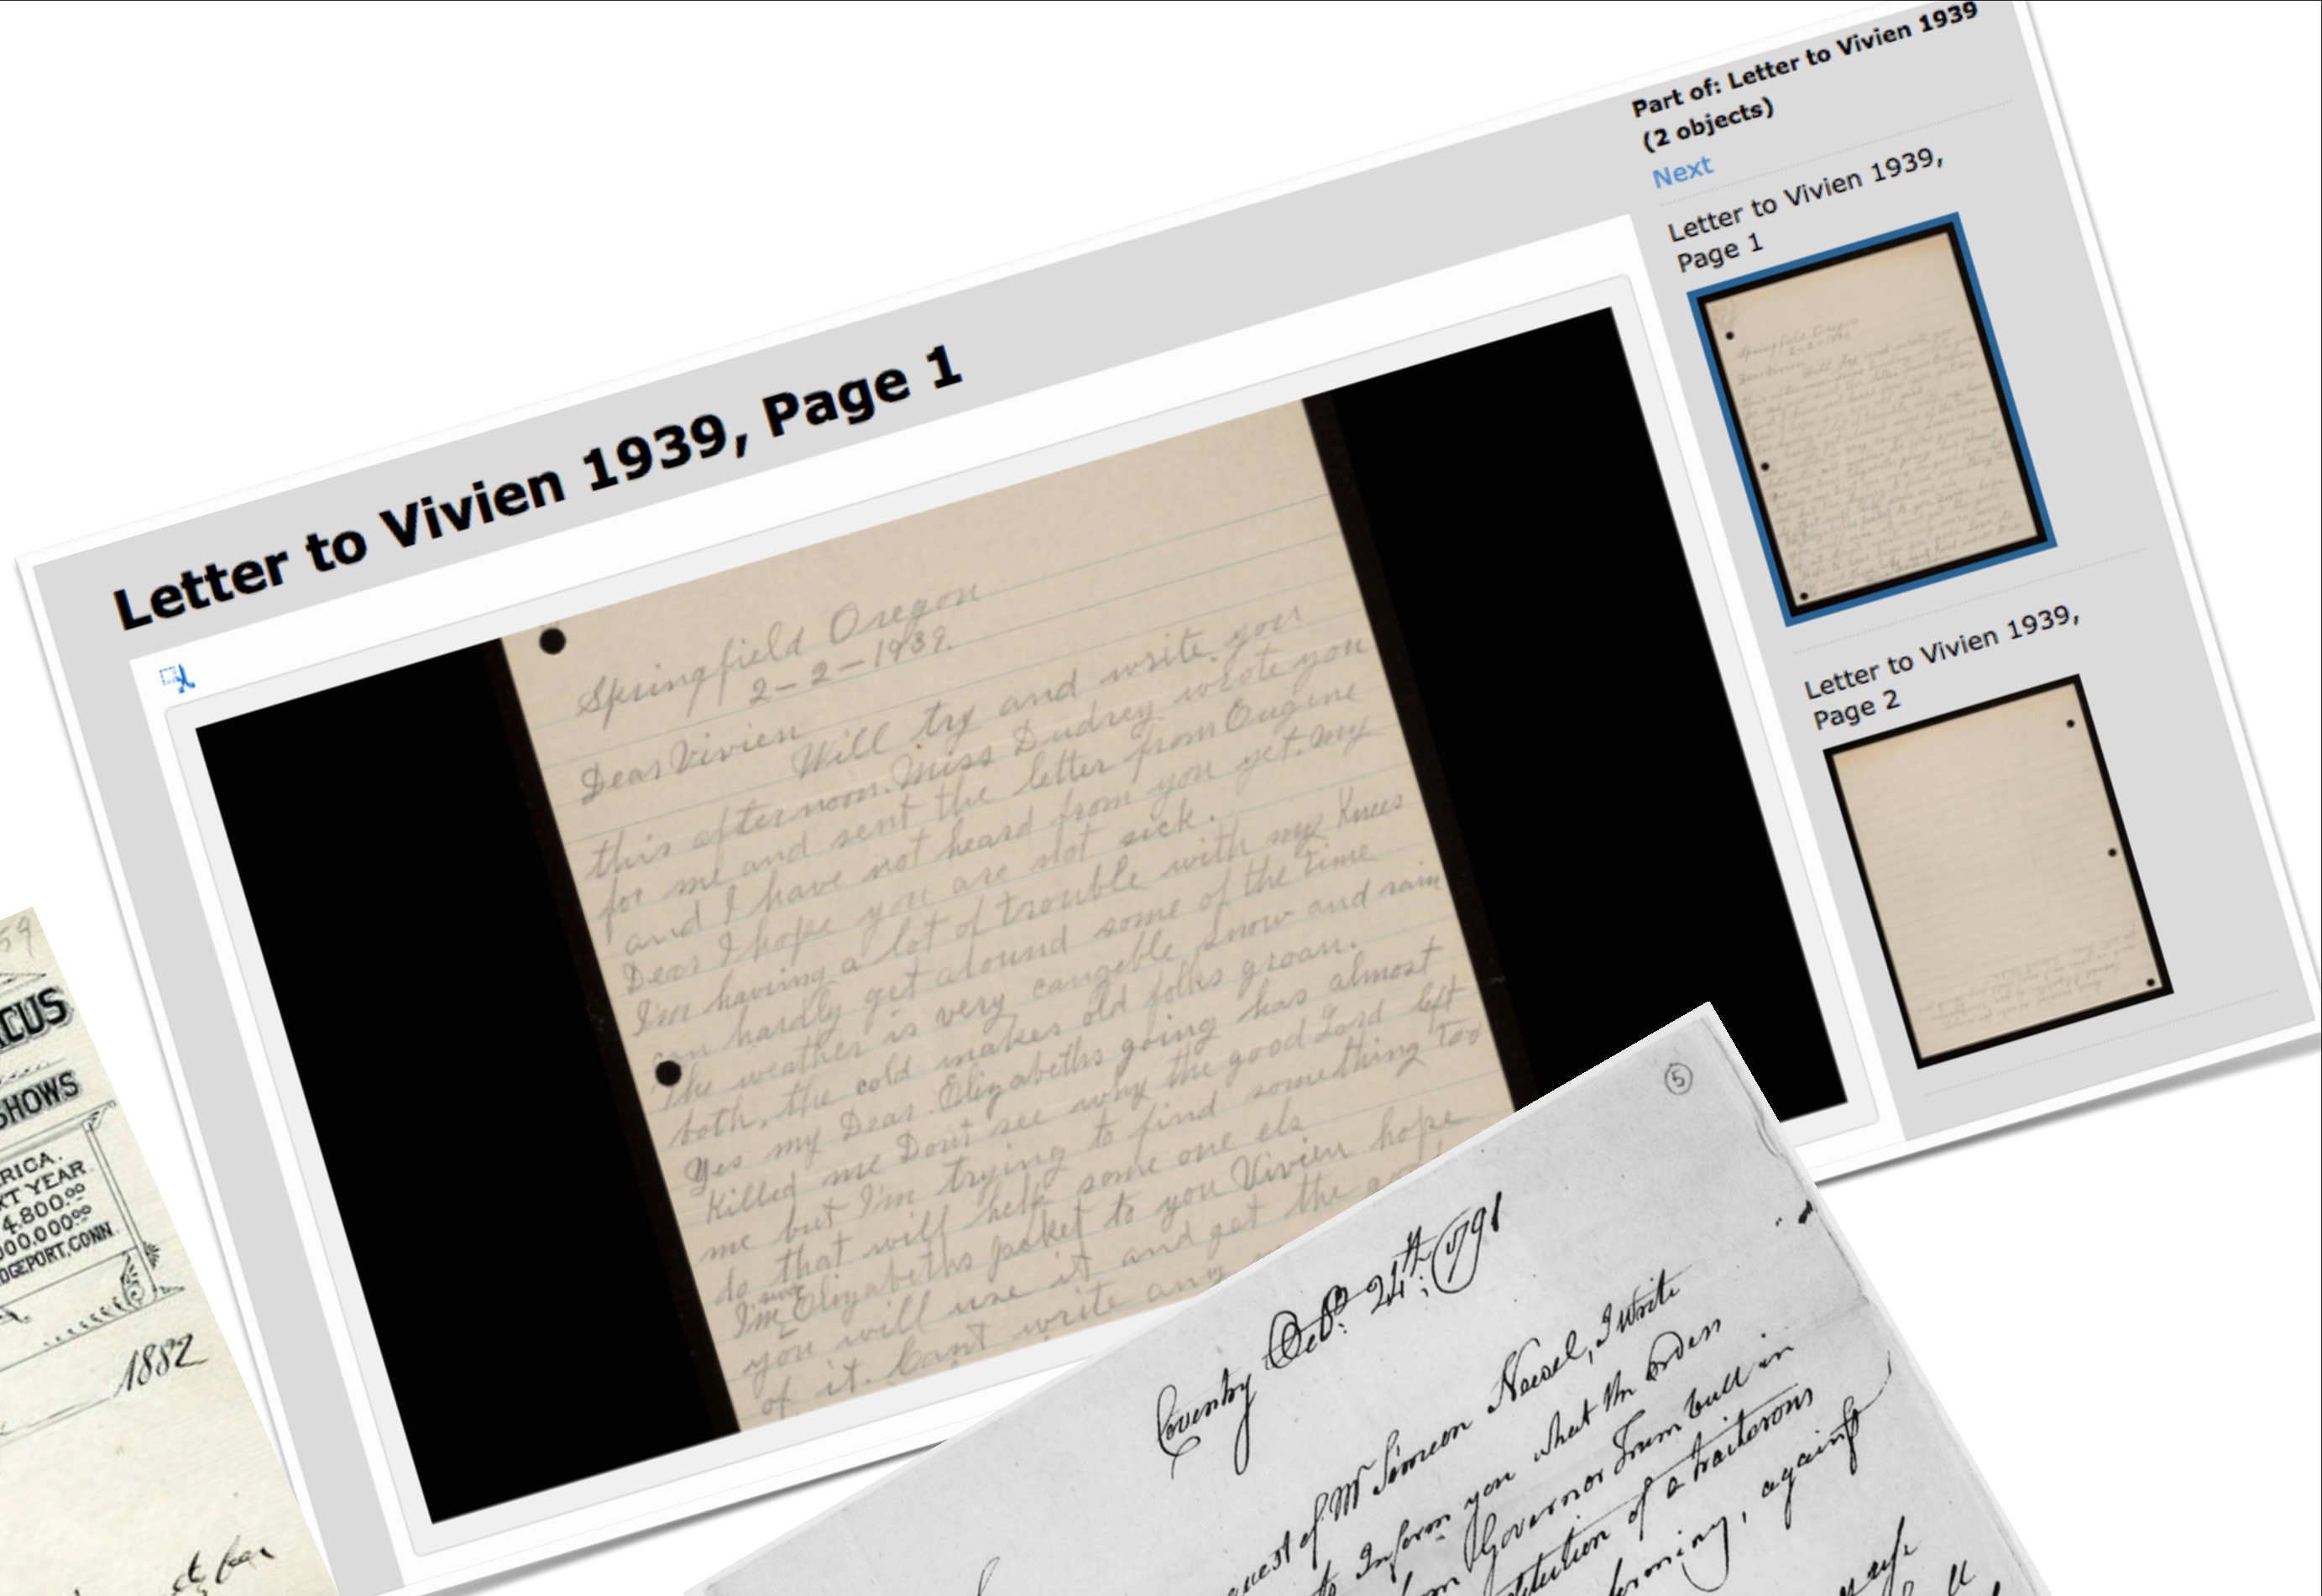 Part of: Letter to Vivien 1939
(2 objects)
Next
Letter to Vivien 1939,
Page 1
Letter to Vivien 1939,
Page 2
Letter to Vivien 1939, Page 1
Springfield Oregon
2-2-1939.
Dear Vivien
Will try and write you
this afternoon. Miss Dudrey wrote you
for me and sent the letter from Eugine
and I have not heard from you yet. My
Dear I hope you are not sick.
I'm having a lot of trouble with my Knees
can hardly get around some of the time
The weather is very cangeble snow and rain
both, the cold makes old folks groan.
Yes my Dear. Elizabeths going has almost
Killed me Dont see why the good Lord left
me but I'm trying to find something too
do that will help some one els
I'm Elizabeths jacket to you Vivien hope
you will use it and get the
of it. Cant write any
59
CUS
SHOWS
RICA.
XT YEAR
4.800.00
000,000.00
DGEPORT, CONN.
1882
5
Coventry Octo: 24th: 1791
quest of Mr Simeon Newel, I write
to Inform you what the orders
Governor Trumbull in
stitution of a traitorous
forming, against